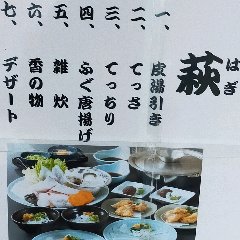 萩
はぎ
一、皮湯引き
二、てっさ
三、てっちり
四、ふぐ唐揚げ
五、雑炊
六、香の物
七、デザート